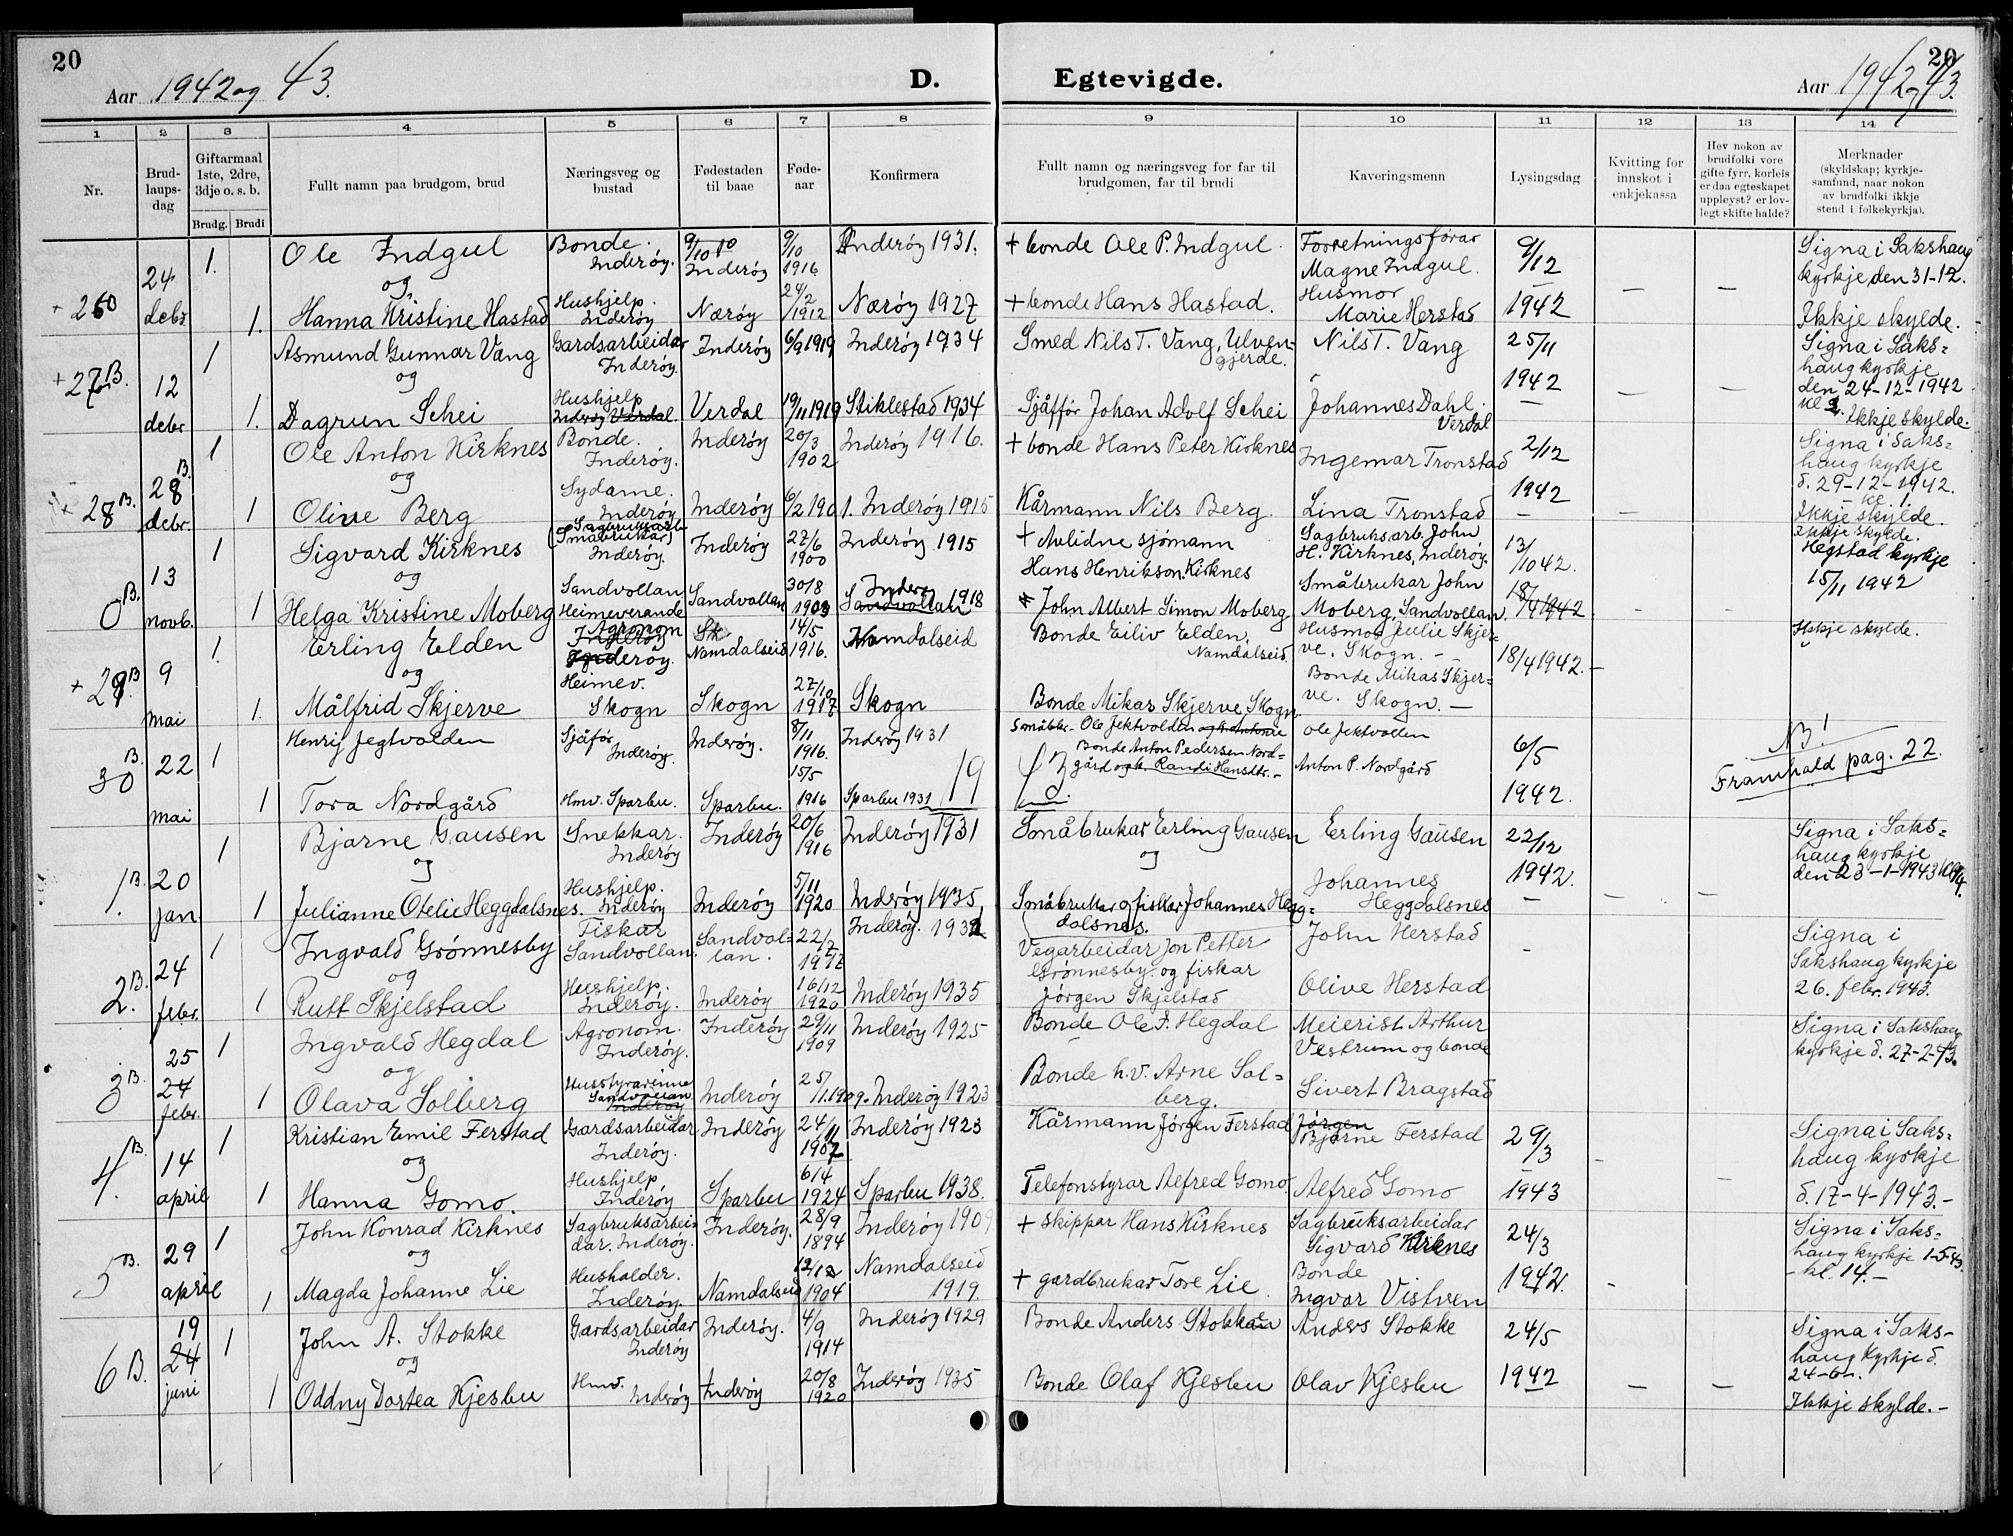 20
Aar 1942 og 43.
D.
Egtevigde.
20
Aar 1942 og 43.
1 2 3 4 5 6 7 8 9 10 11 12 13 14
Nr.
Brud-
laups-
dag
Giftarmaal
1ste, 2dre,
3dje o. s. b.
Brudg. Brudi
Fullt namn paa brudgom, brud
Næringsveg og
bustad
Fødestaden
til baae
Føde-
aar
Konfirmera
Fullt namn og næringsveg for far til
brudgomen, far til brudi
Kaveringsmenn
Lysingsdag
Kvitting for
innskot i
enkjekassa
Hev nokon av
brudfolki vore
gifte fyrr, korleis
er daa egteskapet
uppleyst? er lov-
legt skifte halde?
Merknader
(skyldskap; kyrkje-
samfund, naar nokon
av brudfolki ikkje
stend i folkekyrkja).
+ 26B 24 debr 1. Ole Indgul Bonde. Inderøy. Inderøy 9/10 1916 Inderøy 1931. + bonde Ole P. Indgul. Forretningsførar Magne Indgul. 9/12 1942 Signa i Sakshaug kyrkje den 31-12.
og
1. Hanna Kristine Hastad Hushjelp. Inderøy Nærøy 24/2 1912 Nærøy 1927 + bonde Hans Hastad. Husmor Marie Herstad — — Ikkje skylde.
+ 27B. 12 debr 1 Asmund Gunnar Vang Gardsarbeidar Inderøy. Inderøy 6/9 1919 Inderøy 1934 Smed Nils T. Vang, Ulven-gjerde. Nils T. Vang 25/11 1942 Signa i Saks-haug kyrkje den 24-12-1942
og
1. Dagrun Schei Hushjelp Inderøy Verdal. Verdal 19/11 1919 Stiklestad 1934 Sjåffør Johan Adolf Schei Johannes Dahl. Verdal — — Ikkje skylde.
28B. 28 debr. 1 Ole Anton Kirknes Bonde. Inderøy. Inderøy 20/3 1902 Inderøy 1916. + bonde Hans Peter Kirknes Ingemar Tronstad 2/12 1942 Signa i Saks-haug kyrkje d. 29-12-1942. kl. 1.
og
1 Olive Berg Sydame. Inderøy Inderøy 6/2 1901. Inderøy 1915 Kårmann Nils Berg. Lina Tronstad — — Ikkje skylde.
0B. 13 novb. 1 Sigvard Kirknes Sagbruksarb. (Småbrukar) Inderøy. Inderøy 27/6 1900 Inderøy 1915 + Avlidne sjømann Hans Henrikson Kirknes Sagbruksarb. John H. Kirknes, Inderøy. 13/10 42. Ikkje skylde. Hegstad kyrkje 15/11 1942
og
1 Helga Kristine Moberg Sandvollan Heimeverande Sandvollan 30/8 1903 Inderøy Sandvollan 1918 John Albert Simon Moberg Småbrukar John Moberg, Sandvollan. 18/4 1942 — —
+ 29B 9 mai 1. Erling Elden Agronom Inderøy. Namdalseid 14/5 1916. Namdalseid Bonde Eiliv Elden, Namdalseid Husmor Julie Skjer-ve. Skogn. — 18/4 1942. — Ikkje skylde.
og
1. Målfrid Skjerve Heimev. Skogn Skogn 27/10 1917 Skogn Bonde Mikas Skjerve, Skogn. Bonde Mikas Skjer-ve. Skogn. —
30B. 22 mai 1 Henrij Jegtvolden Sjåfør Inderøy. Inderøy. 8/11 1916. Inderøy 1931 Småbbr. Ole Jektvolden og k. Antonie Ole Jektvollen 6/5 1942. NB! Framhald pag. 22.
1 Tora Nordgård Hmv. Sparbu. Sparbu. 15/5 1916 Sparbu 1931 Bonde Anton Pedersen Nord-gård og k. Randi Hansdtr. — Anton P. Nordgård
19 43.
1B. 20 jan. 1 Bjarne Gausen Snekkar. Inderøy Inderøy 20/6 1916 Inderøy 1931 Småbrukar Erling Gausen Erling Gausen 22/12 1942. Signa i Saks-haug kyrkje den 23-1-1943 kl. 14.
og
1 Julianne Otelie Heggdalsnes. Hushjelp. Inderøy Inderøy 5/11 1920 Inderøy 1935 Småbrukar og fiskar Johannes Hegg-dalsnes. Johannes Heggdalsnes — — —
2B. 24 febr. 1 Ingvald Grønnesby Fiskar Sandvollan. Sandvol-lan. 22/7 1917 Inderøy. 1932 Vegarbeidar Jon Petter Grønnesby og fiskar John Herstad — Signa i Sakshaug kyrkje 26. febr. 1943.
og
1 Rutt Skjelstad Hushjelp. Inderøy. Inderøy 16/12 1920 Inderøy 1935 Jørgen Skjelstad Olive Herstad
3B. 25 24 febr. 1 Ingvald Hegdal Agronom. Inderøy. Inderøy 29/11 1909 Inderøy 1925 Bonde Ole J. Hegdal Meierist Arthur Vestrum og bonde Signa i Sakshaug kyrkje d. 27-2-43.
og
1 Olava Solberg Husstyrarinne Sandvollan Inderøy Inderøy 25/11. 1909. Inderøy 1923 Bonde h.v. Arne Sol-berg. Sivert Bragstad
4B. 14 april 1 Kristian Emil Ferstad Gardsarbeidar Inderøy. Inderøy 24/11 1907 Inderøy 1923 Kårmann Jørgen Ferstad Jørgen Bjarne Ferstad 29/3 1943 — Signa i Saks-haug kyrkje d. 17-4-1943.-
og
1 Hanna Gomo. Hushjelp Inderøy Sparbu 6/4 1924 Sparbu 1938. Telefonstyrar Alfred Gomo. Alfred Gomo —
5B. 29 april 1 John Konrad Kirknes Sagbruksarbei-dar. Inderøy. Inderøy. 28/9 1894 Inderøy 1909 + skippar Hans Kirknes Sagbruksarbeidar Sigvard Kirknes 24/3 1942. Signa i Saks-haug kyrkje 1-5-43. - kl. 14.-
og
1 Magda Johanne Lie Husholder. Inderøy. Namdalseid 12/12 1904 Namdalseid 1919. + gardbrukar Tore Lie Bonde Ingvar Vistven —
6B. 19 24 juni 1 John A. Stokke Gardsarbeidar Inderøy Inderøy. 4/9 1914 Inderøy 1929 Bonde Anders Stokkan Anders Stokke 24/5 1942 Signa i Saks-haug kyrkje d. 24-6-.
og
1 Oddny Dortea Kjesbu Hmv. Inderøy Inderøy 20/8 1920 Inderøy 1935 Bonde Olaf Kjesbu Olav Kjesbu — — Ikkje skylde.-